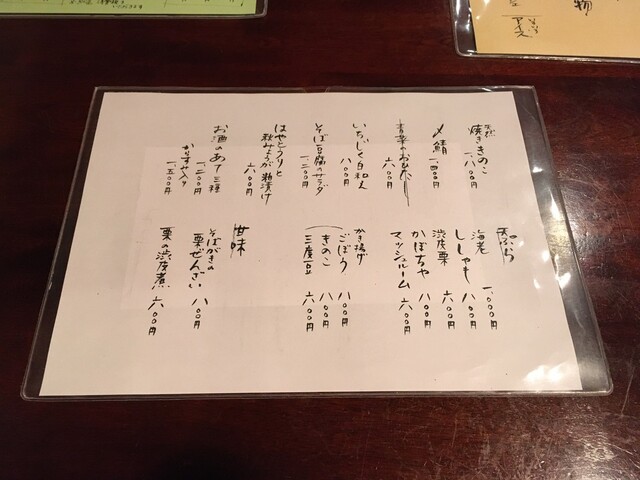 焼ききのこ 一、八〇〇円
〆鯖 一、四〇〇円
青菜のおひたし 六〇〇円
いちじく白和え 八〇〇円
そば豆腐のサラダ 一、二〇〇円
はやとうりと
秋みょうが粕漬け 六〇〇円
お酒のあて三種 一、二〇〇円
からすみ入り 一、五〇〇円
天ぷら
海老 一、〇〇〇円
ししゃも 八〇〇円
渋皮栗 六〇〇円
かぼちゃ 八〇〇円
マッシュルーム 六〇〇円
かき揚げ
ごぼう 八〇〇円
きのこ 八〇〇円
三度豆 六〇〇円
甘味
そばがきの
栗ぜんざい 八〇〇円
栗の渋皮煮 六〇〇円
物
アイス